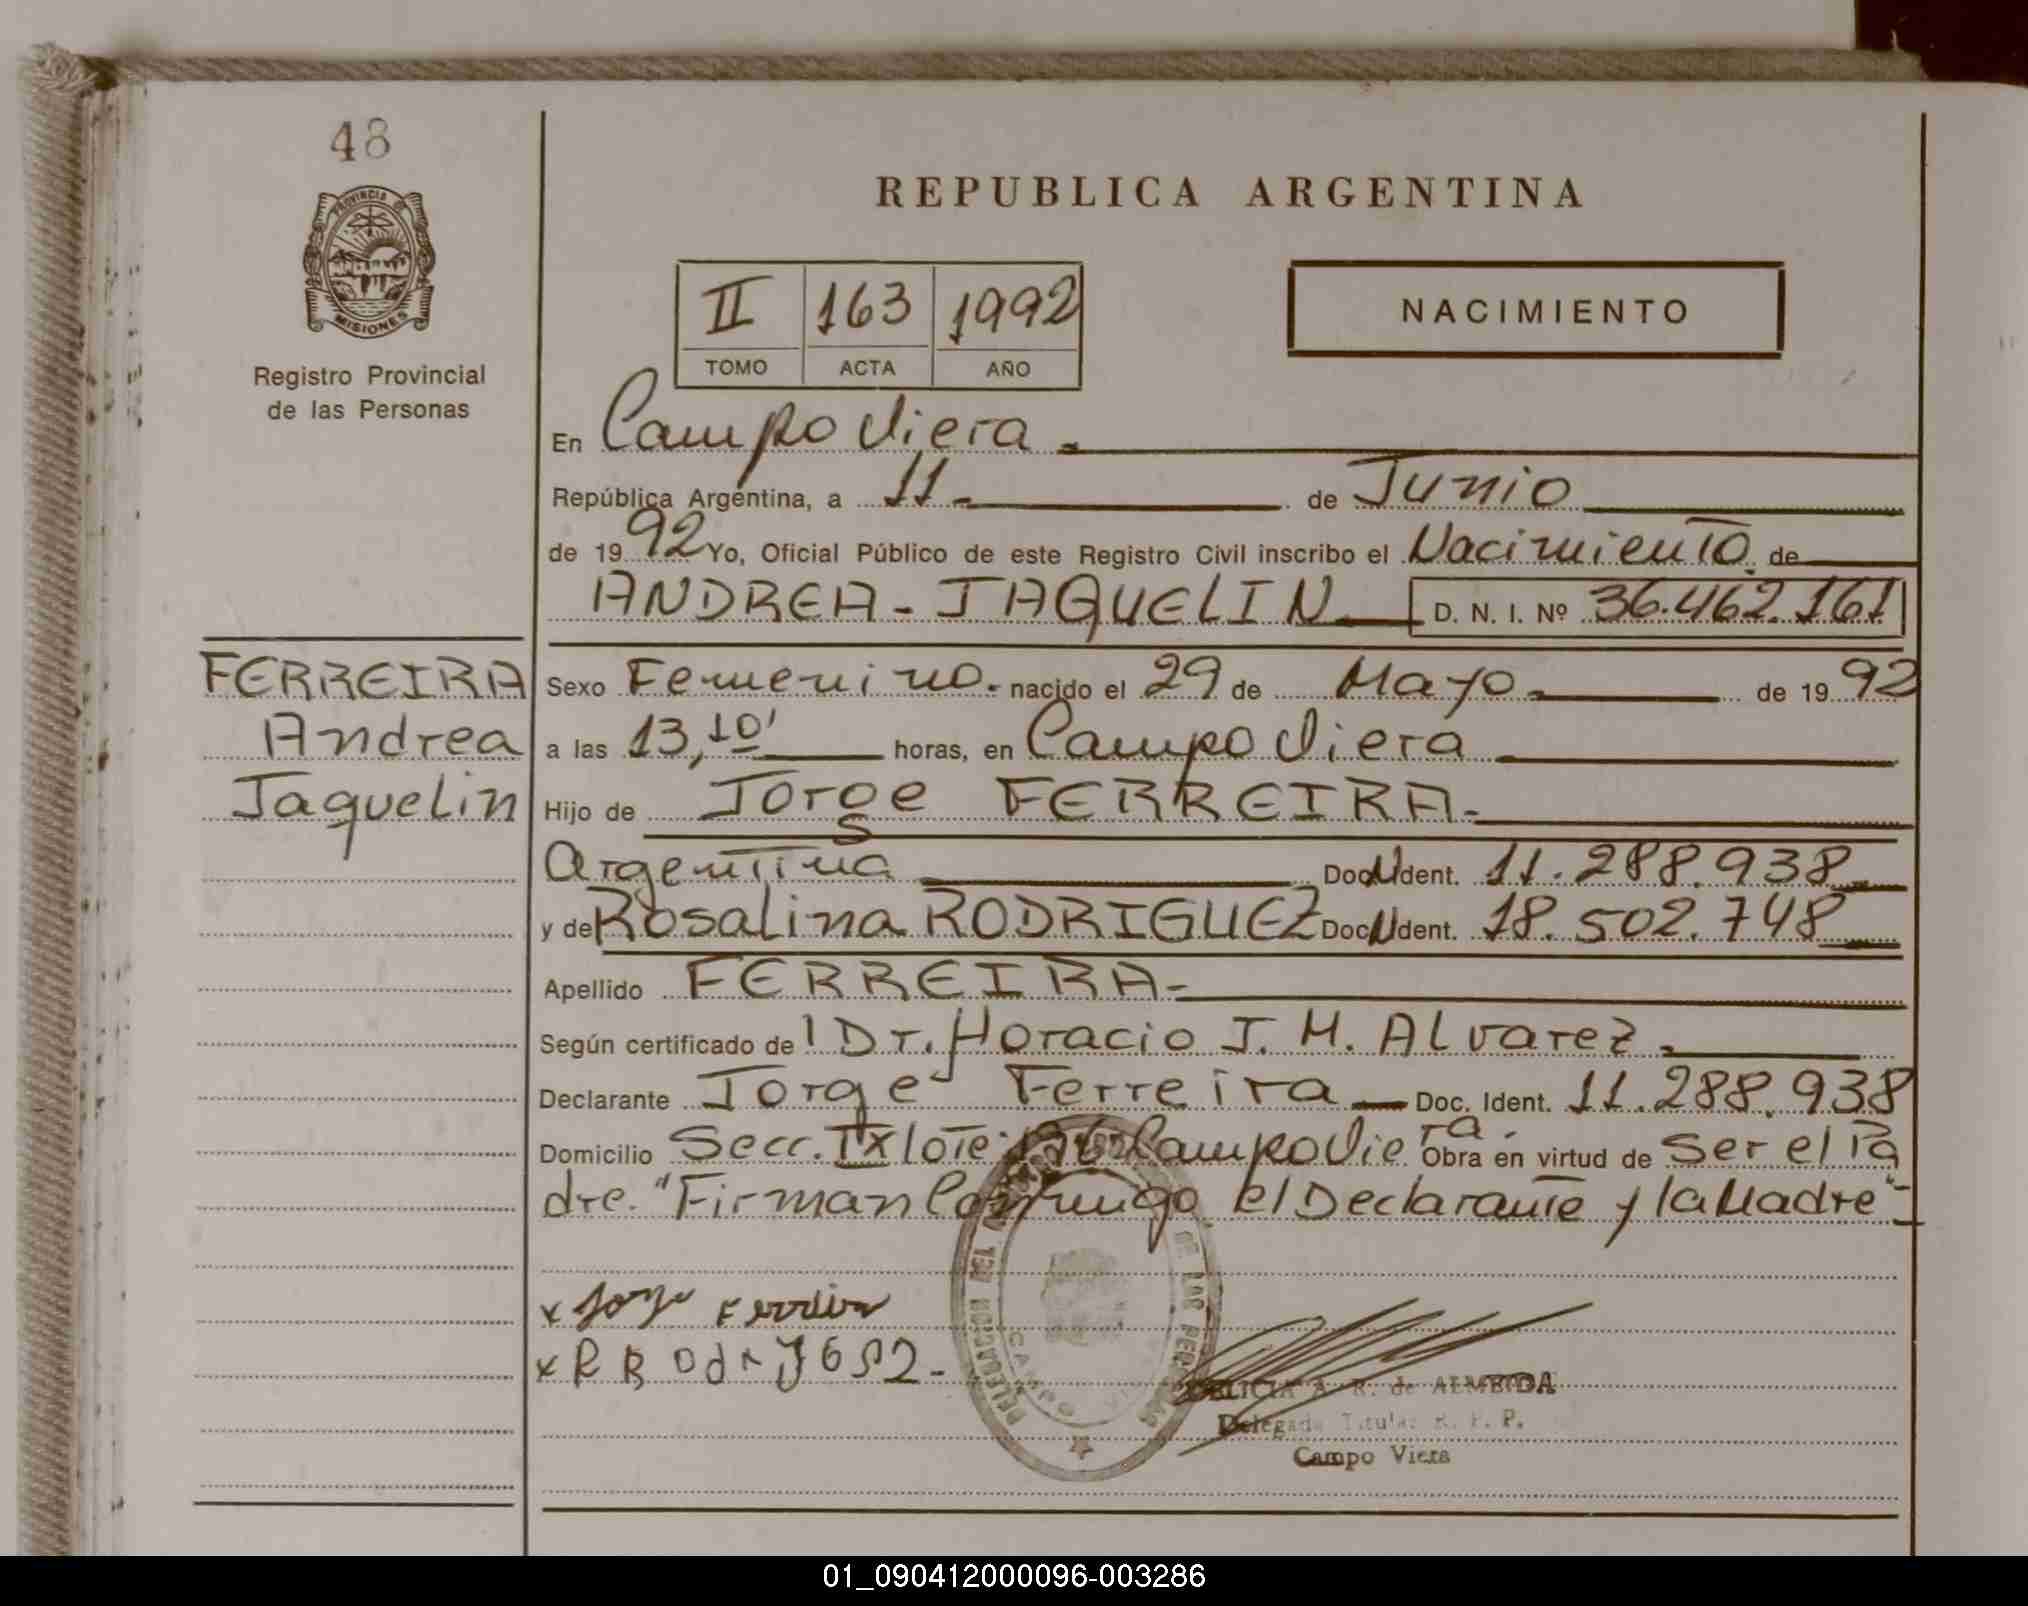 48
REPUBLICA ARGENTINA
PROVINCIA DE
MISIONES
Registro Provincial
de las Personas
II 163 1992
TOMO ACTA AÑO
NACIMIENTO
En Campo Viera.
República Argentina, a 11. de Junio
de 1992 Yo, Oficial Público de este Registro Civil inscribo el Nacimiento. de
ANDREA - JAQUELIN D. N. I. Nº 36.462.161
FERREIRA
Andrea
Jaquelin
Sexo Femenino. nacido el 29 de Mayo. de 1992
a las 13,10' horas, en Campo Viera
Hijo de Jorge FERREIRA.
Argentina Doc. Ident. 11.288.938
y de Rosalina RODRIGUEZ Doc. Ident. 18.502.748
Apellido FERREIRA-
Según certificado de l Dr. Horacio J. M. Alvarez.
Declarante Jorge Ferreira Doc. Ident. 11.288.938
Domicilio Secc. IX lote Campo Viera. Obra en virtud de Ser el Pa
dre. "Firman Conmigo el Declarante y la Madre"-
x Jorge Ferreira
x R R
DELICIA A. R. de ALMEIDA
Delegada Titular R. P. P.
Campo Viera
01_090412000096-003286